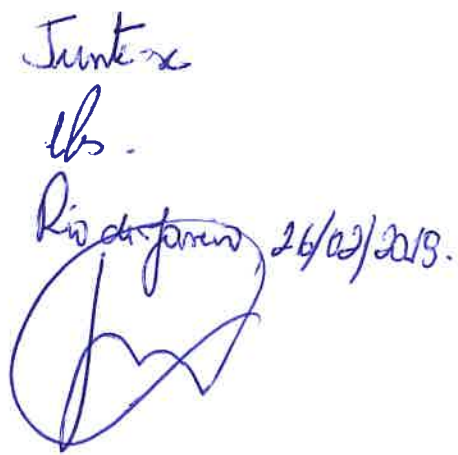 Junte-se
Rio de Janeiro, 26/02/2019.